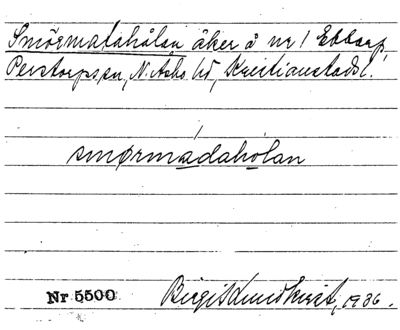 Smörmatahålan åker å nr 1 Ebbarp,
Perstorps sn, N. Åsbo hd, Kristianstads l.
smørmadaholan
Nr 5500 Birgit Lundkvist, 1936.